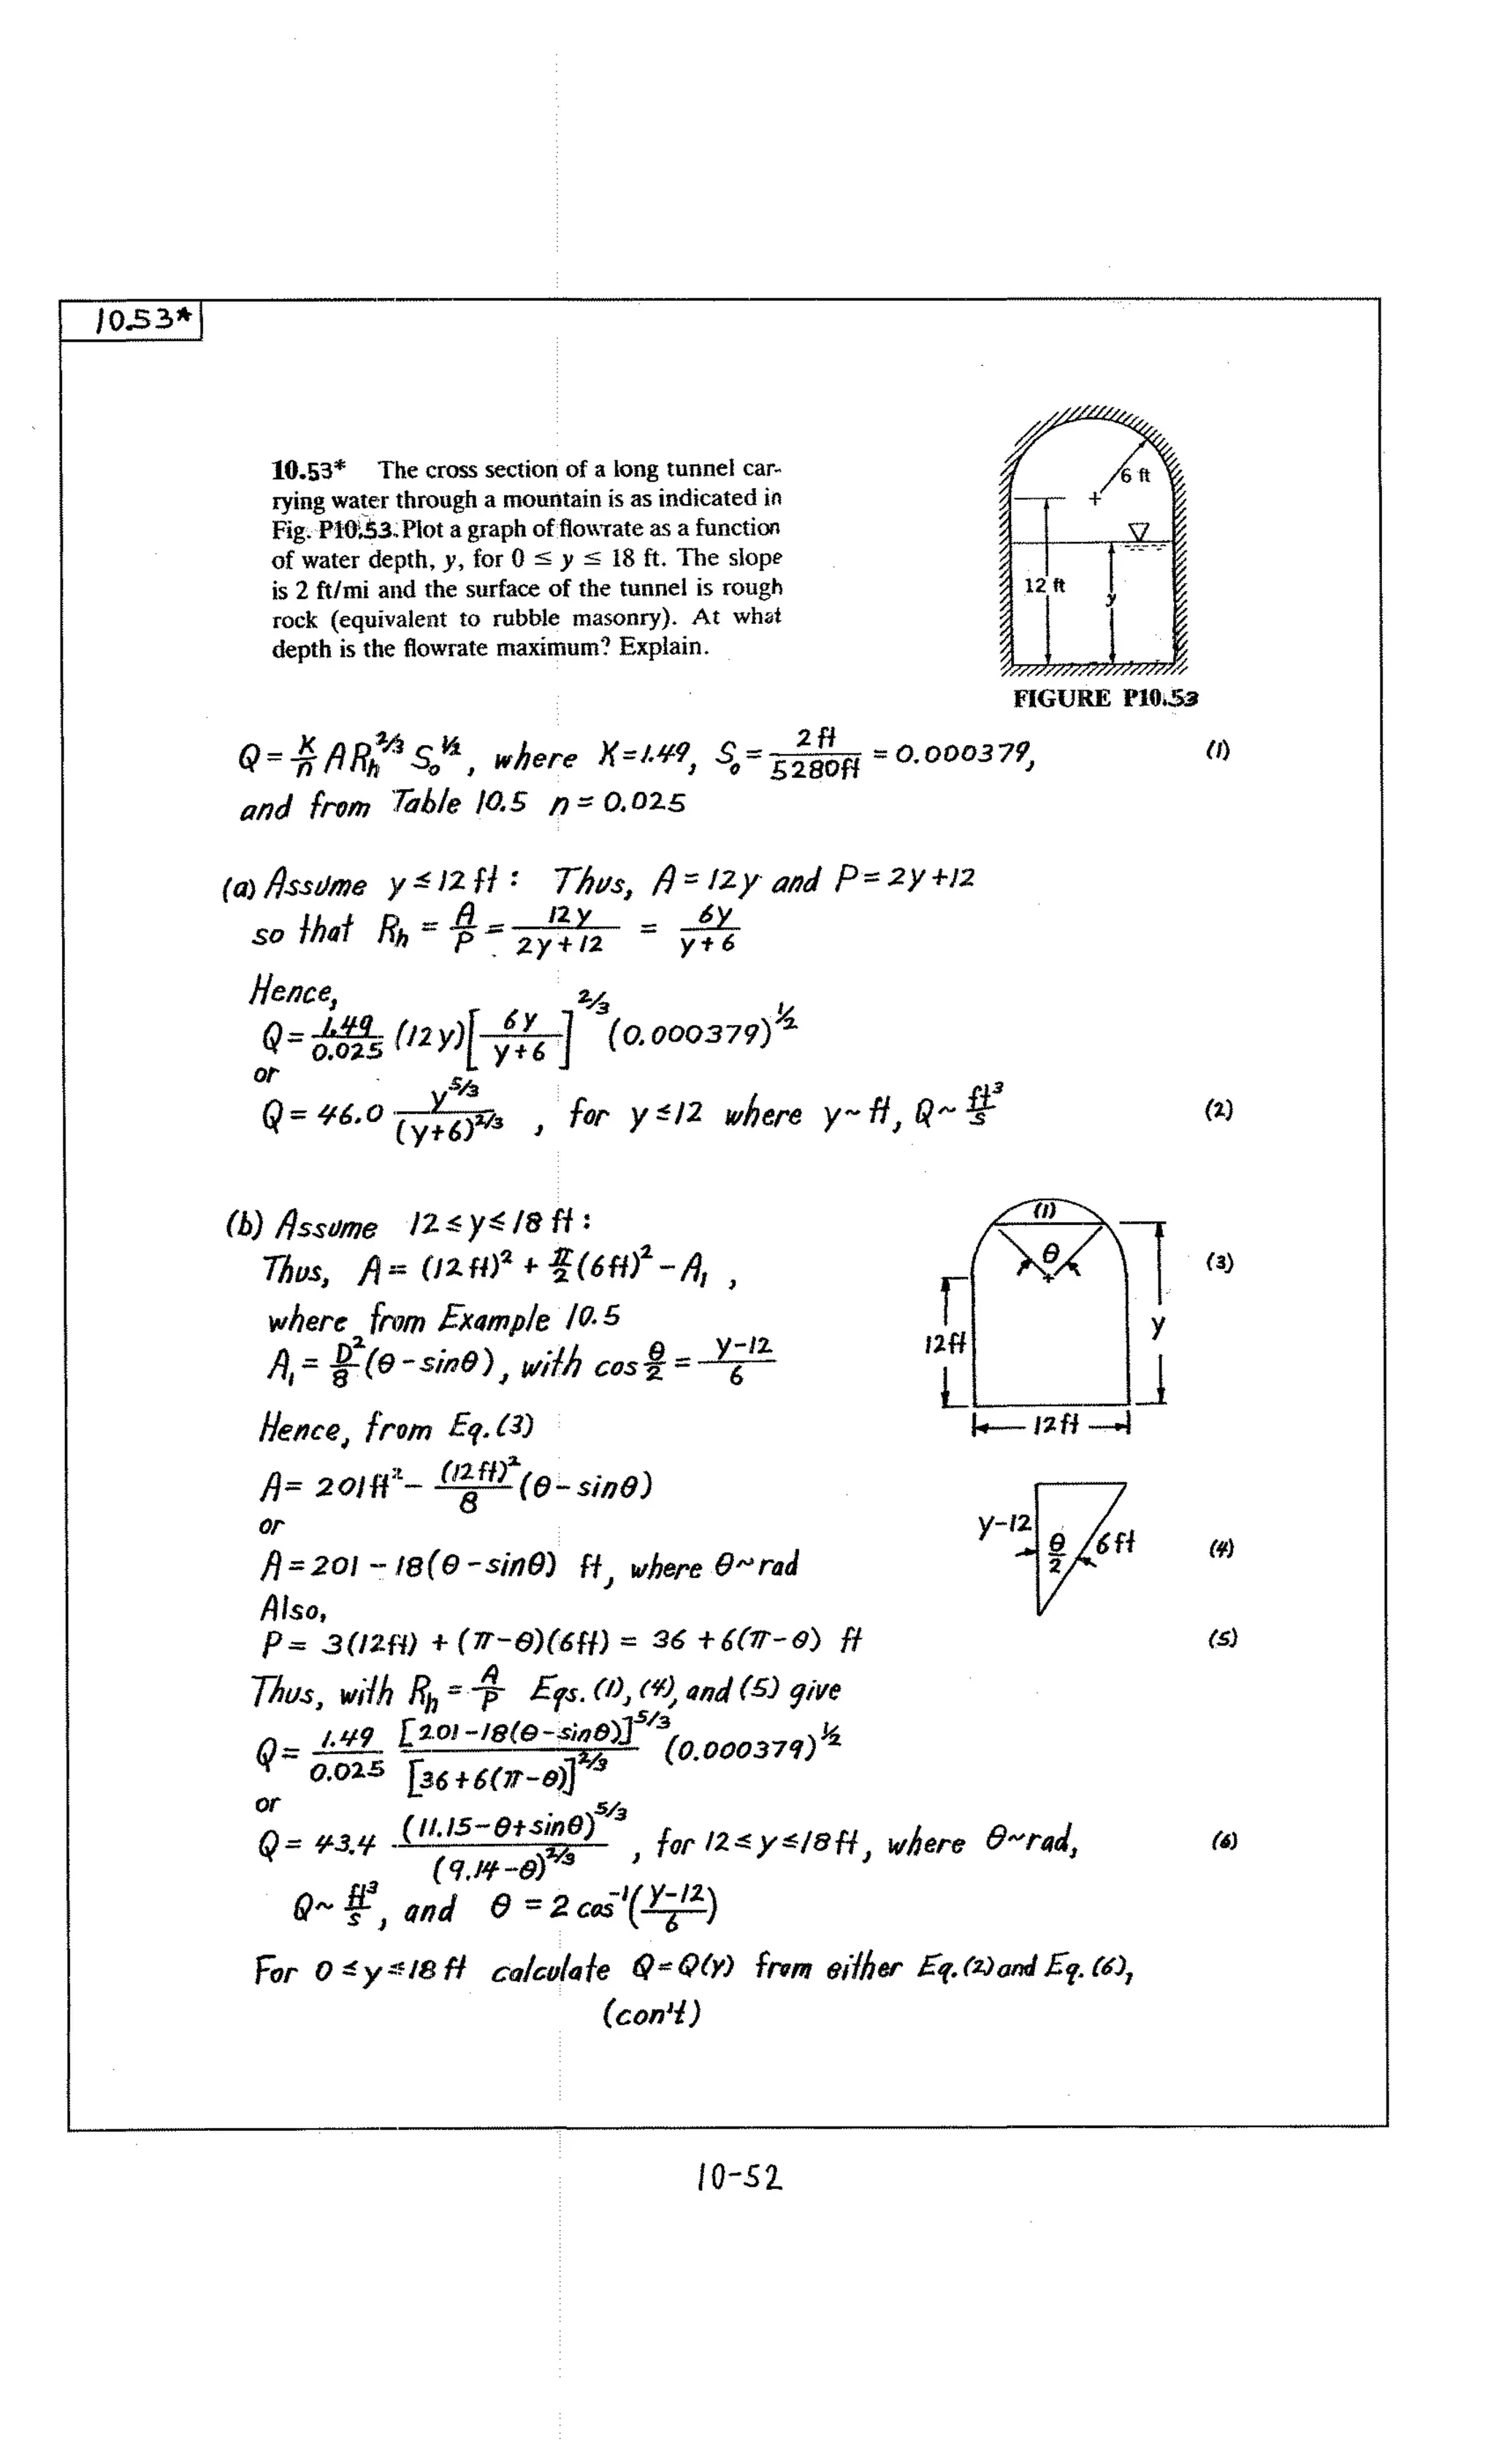 10.53*
10.53* The cross section of a long tunnel car-
rying water through a mountain is as indicated in
Fig. P10.53. Plot a graph of flowrate as a function
of water depth, y, for 0 ≤ y ≤ 18 ft. The slope
is 2 ft/mi and the surface of the tunnel is rough
rock (equivalent to rubble masonry). At what
depth is the flowrate maximum? Explain.
6 ft
12 ft
y
FIGURE P10.53
Q = K/n A R_h^(2/3) S_o^(1/2), where K=1.49, S_o = 2ft/5280ft = 0.000379, (1)
and from Table 10.5 n = 0.025
(a) Assume y ≤ 12 ft : Thus, A = 12y and P = 2y+12
so that R_h = A/P = 12y/(2y+12) = 6y/(y+6)
Hence,
Q = 1.49/0.025 (12y)[6y/(y+6)]^(2/3) (0.000379)^(1/2)
or
Q = 46.0 y^(5/3)/(y+6)^(2/3) , for y ≤ 12 where y~ft, Q~ft³/s (2)
(b) Assume 12 ≤ y ≤ 18 ft :
Thus, A = (12 ft)² + π/2 (6ft)² - A₁ , (3)
where from Example 10.5
A₁ = D²/8 (θ - sinθ), with cos θ/2 = (y-12)/6
(1)
θ
12ft
y
12ft
Hence, from Eq. (3)
A = 201ft² - (12ft)²/8 (θ - sinθ)
or
A = 201 - 18(θ - sinθ) ft, where θ~rad (4)
y-12
θ/2
6ft
Also,
P = 3(12ft) + (π-θ)(6ft) = 36 + 6(π-θ) ft (5)
Thus, with R_h = A/P Eqs. (1), (4), and (5) give
Q = 1.49/0.025 [201-18(θ-sinθ)]^(5/3)/[36+6(π-θ)]^(2/3) (0.000379)^(1/2)
or
Q = 43.4 (11.15-θ+sinθ)^(5/3)/(9.14-θ)^(2/3) , for 12 ≤ y ≤ 18ft, where θ~rad, (6)
Q~ft³/s, and θ = 2 cos⁻¹((y-12)/6)
For 0 ≤ y ≤ 18 ft calculate Q = Q(y) from either Eq. (2) and Eq. (6),
(con't)
10-52